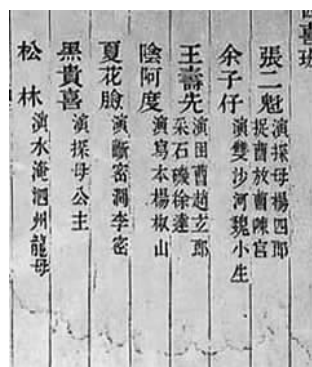 四喜班
張二魁 演探母楊四郎 捉曹放曹陳宮
余子仔 演雙沙河魏小生
王壽先 演困曹趙玄郎 采石磯徐達
陰阿度 演寫本楊椒山
夏花臉 演斷密澗李密
黑貴喜 演探母公主
松林 演水淹泗州龍母